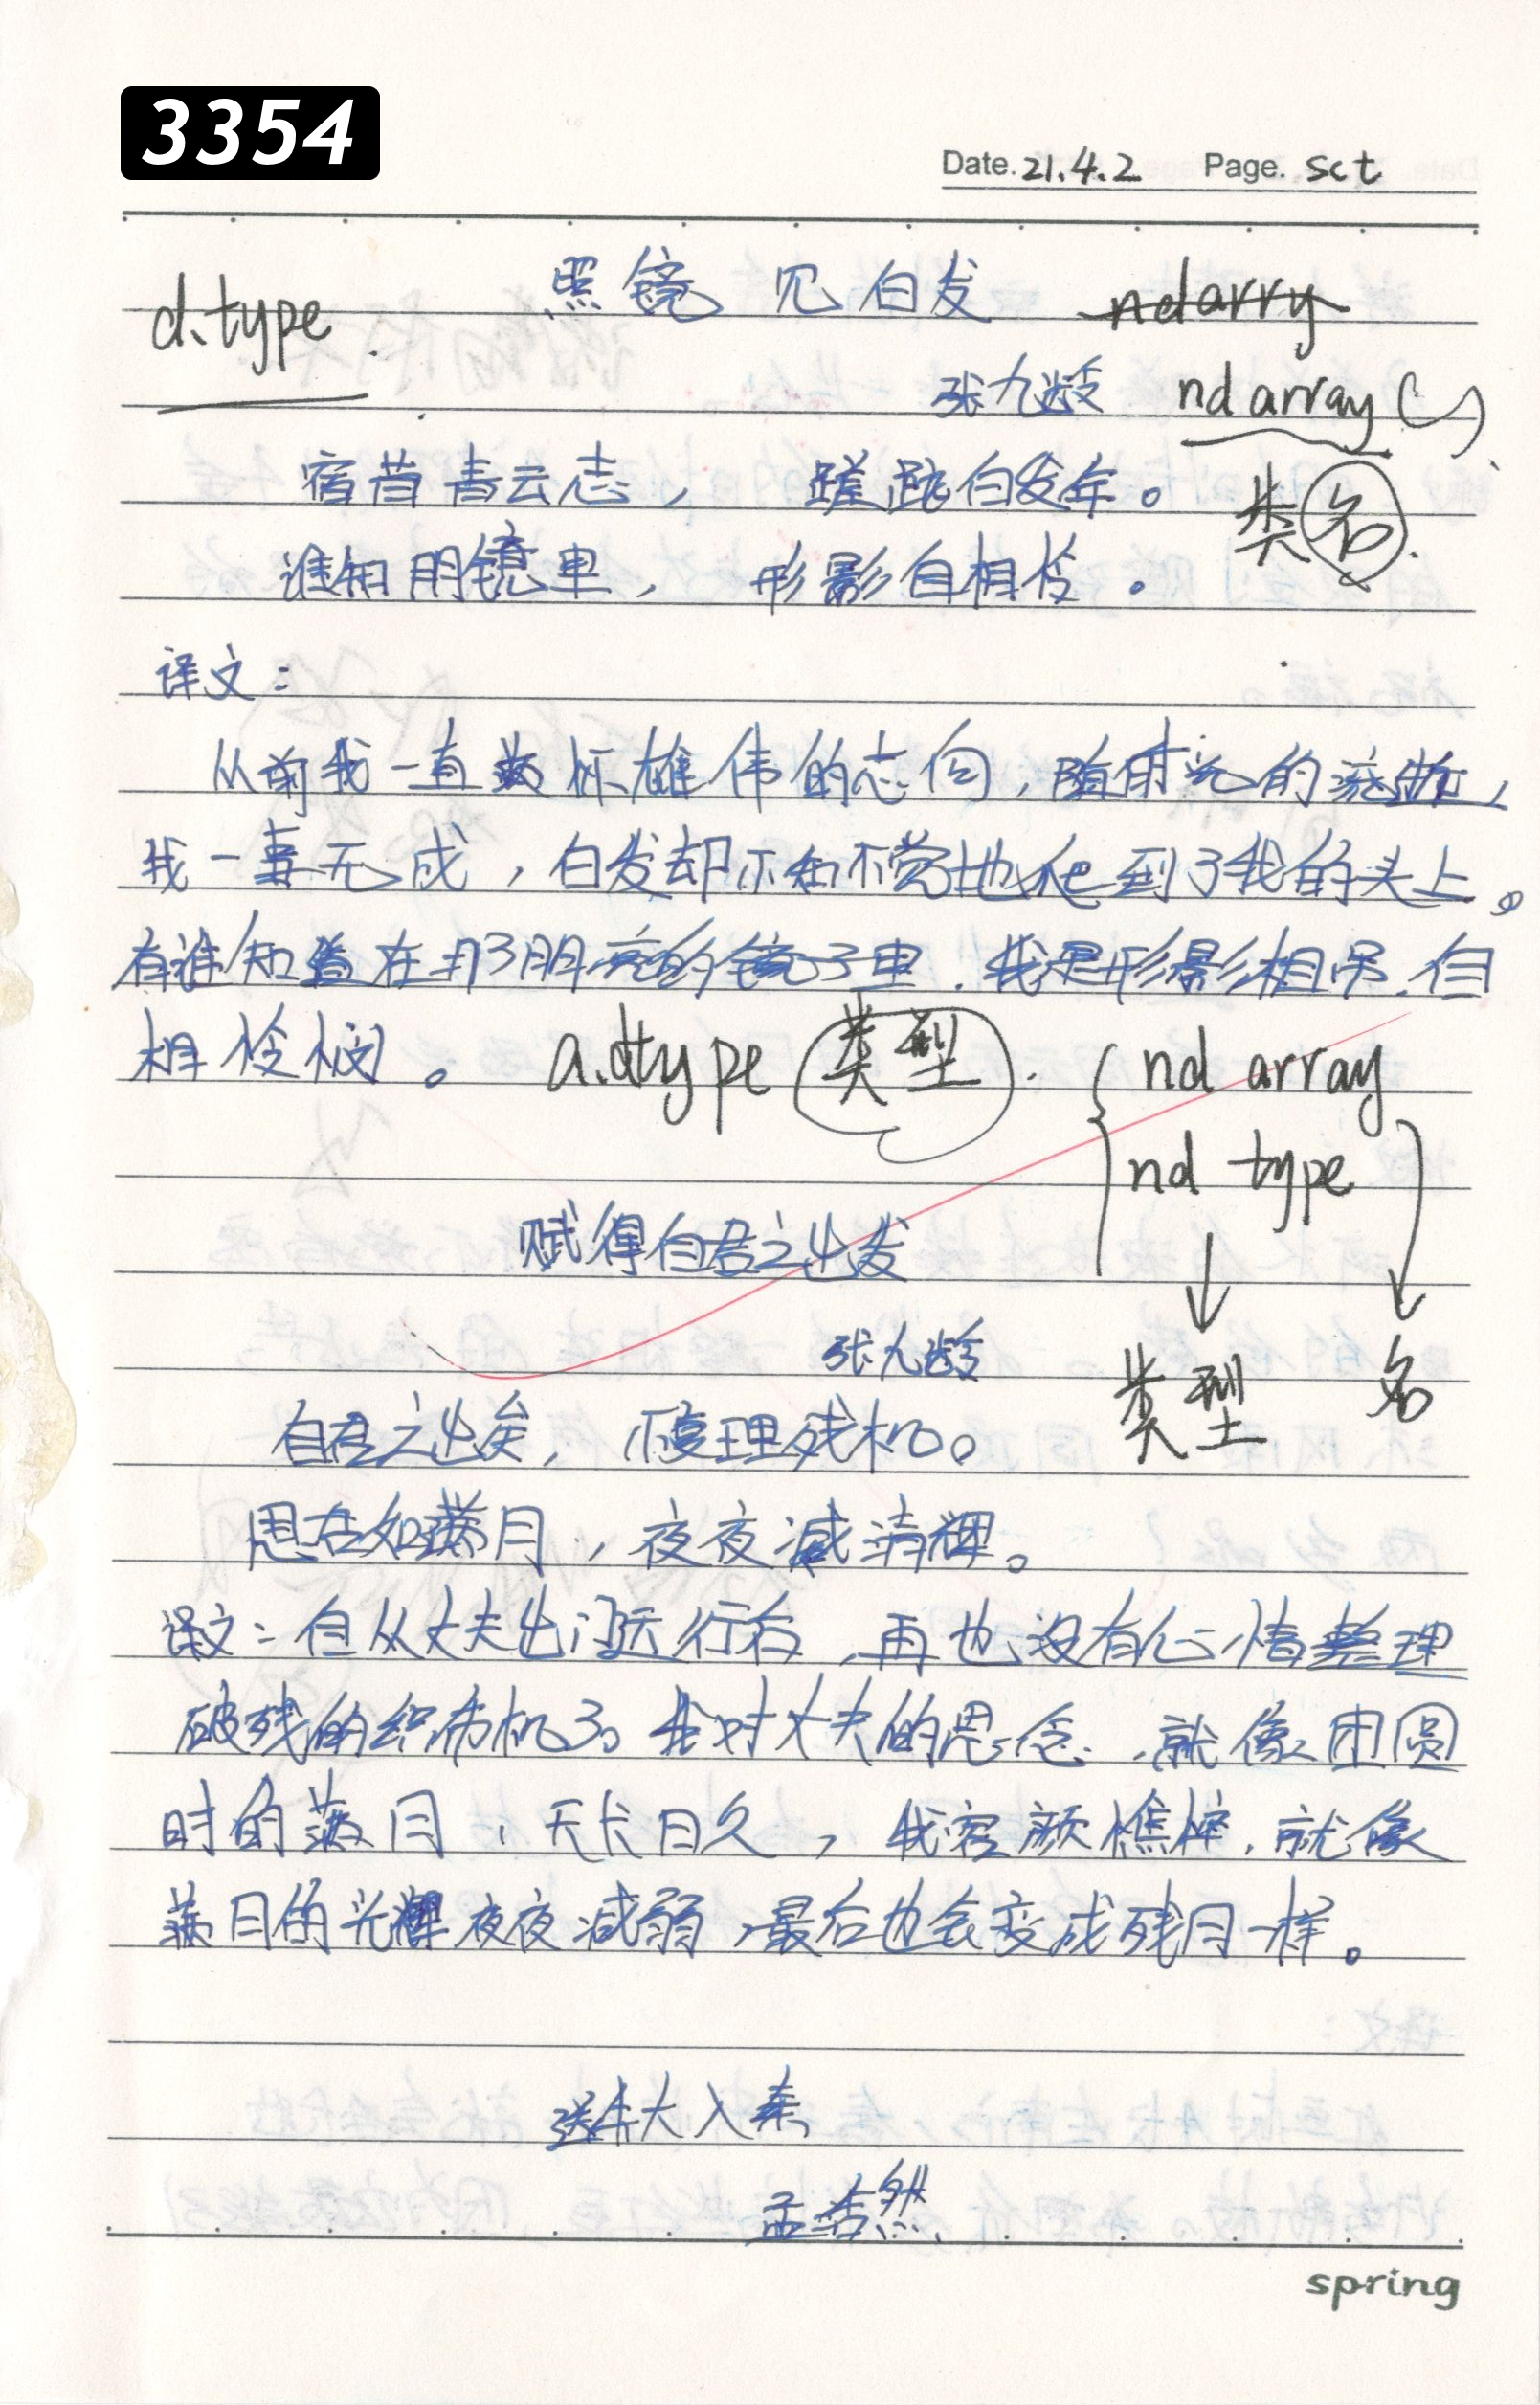 3354
Date. 21.4.2 Page. sct
d.type 照镜见白发 ndarry
张九龄 nd array ( )
宿昔青云志， 蹉跎白发年。 类名.
谁知明镜里， 形影自相怜。
译文：
从前我一直 怀雄伟的志向，随时光的流逝，
我一事无成，白发却不知不觉地爬到了我的头上。
有谁知道在 了明亮的镜子里.我是形影相吊.自
相怜悯。 a.dtype 类型. nd array
nd type
赋得自君之出发
张九龄 类型 名
自君之出矣，不复理残机。
思君如满月，夜夜减清辉。
译文：自从丈夫出门远行后，再也没有心情整理
破残的织布机了。我对丈夫的思念.，就像团圆
时的满月，天长日久，我容颜憔悴.就像
满月的光辉夜夜减弱，最后也会变成残月一样。
送朱大入秦
孟浩然
spring